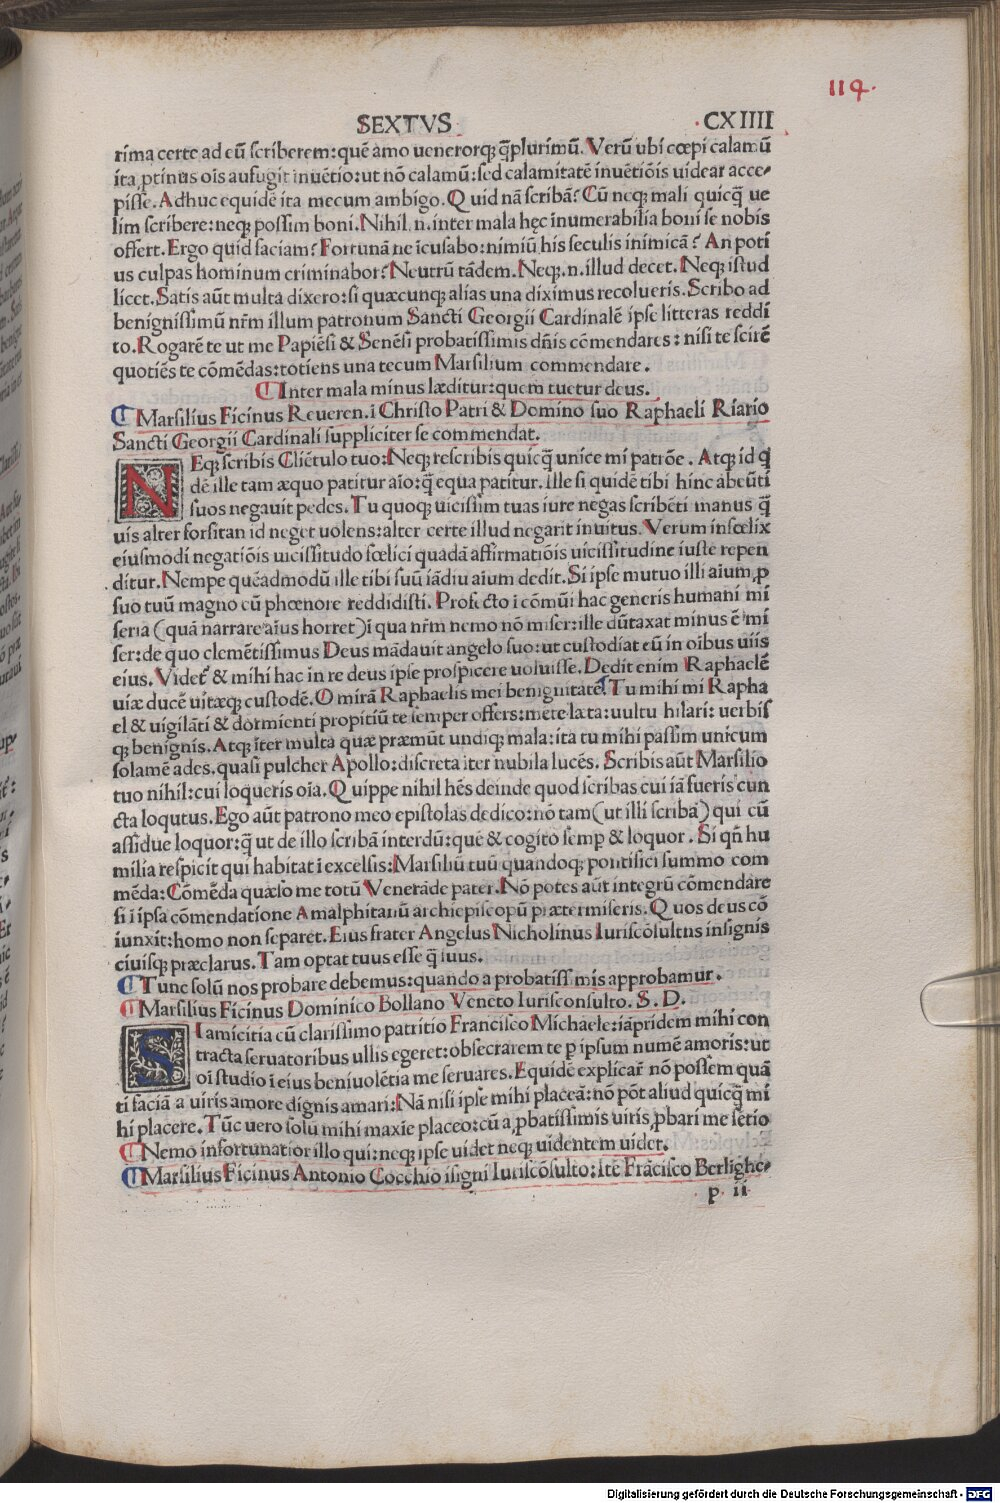 114.
SEXTVS
.CXIIII
rima certe ad eū scriberem:quē amo uenerorq; q̄plurimū. Verū ubi cœpi calamū
ita ꝓtinus oīs aufugit inuētio:ut nō calamū:sed calamitatē inuētiōīs uidear acce-
pisse. Adhuc equidē ita mecum ambigo. Quid nā scribā? Cū neq; mali quicq̄ ue
lim scribere:neq; possim boni. Nihil .n. inter mala hęc innumerabilia boni se nobis
offert. Ergo quid faciam? Fortunā ne īcusabo:nimiū his seculis inimicā? An poti
us culpas hominum criminabor? Neutrū tādem. Neq; .n. illud decet. Neq; istud
licet. Satis aūt multa dixero:si quæcunq; alias una diximus recolueris. Scribo ad
benignissimū nr̄m illum patronum Sancti Georgii Cardinalē ipse litteras reddi
to. Rogarē te ut me Papiēsi & Senēsi probatissimis dn̄is cōmendares: nisi te scirē
quotiēs te cōmēdas:totiens una tecum Marsilium commendare.
Inter mala minus læditur:quem tuetur deus.
Marsilius Ficinus Reueren. ī Christo Patri & Domino suo Raphaeli Riario
Sancti Georgii Cardinali suppliciter se commendat.
NEq; scribis Cliētulo tuo:Neq; rescribis quicq̄ unice mi patrōe. Atq; id q
dē ille tam æquo patitur aīo:q̄ equa patitur. Ille si quidē tibi hinc abeūti
suos negauit pedes. Tu quoq; uicissim tuas iure negas scribēti manus q̄
uis alter forsitan id neget uolens:alter certe illud negarit inuitus. Verum infœlix
eiusmodi negatiōis uicissitudo fœlici quadā affirmatiōis uicissitudine iuste repen
ditur. Nempe quēadmodū ille tibi suū iādiu aīum dedit. Si ipse mutuo illi aīum ꝓ
suo tuū magno cū phœnore reddidisti. Profecto ī cōmūi hac generis humani mi
seria (quā narrare aīus horret) ī qua nr̄m nemo nō miser:ille dūtaxat minus ē mi
ser:de quo clemētissimus Deus mādauit angelo suo:ut custodiat eū in oibus uiis
eius. Videt̄ & mihi hac in re deus ipse prospicere uoluisse. Dedit enim Raphaelē
uiæ ducē uitæq; custodē. O mirā Raphaelis mei benignitatē. Tu mihi mi Rapha
el & uigilāti & dormienti propitiū te semper offers:mēte læta:uultu hilari: uerbis
q; benignis. Atq; iter multa quæ præmūt undiq; mala:ita tu mihi passim unicum
solamē ades. quasi pulcher Apollo:discreta iter nubila lucēs. Scribis aūt Marsilio
tuo nihil:cui loqueris oīa. Quippe nihil hēs deinde quod scribas cui iā fueris cun
cta loqutus. Ego aūt patrono meo epistolas dedico:nō tam (ut illi scribā) qui cū
assidue loquor:q̄ ut de illo scribā interdū:quē & cogito semp & loquor. Si qn̄ hu
milia respicit qui habitat ī excelsis:Marsiliū tuū quandoq; pontifici summo com
mēda:Cōmēda quæso me totū Venerāde pater. Nō potes aūt integrū cōmendare
si ī ipsa cōmendatione Amalphitanū archiepiscopū prætermiseris. Quos deus cō
iunxit:homo non separet. Eius frater Angelus Nicholinus Iuriscōsultus insignis
ciuisq; præclarus. Tam optat tuus esse q̄ suus.
Tunc solū nos probare debemus:quando a probatissimis approbamur.
Marsilius Ficinus Dominico Bollano Veneto Iurisconsulto. S. D.
SI amicitia cū clarissimo patritio Francisco Michaele:iāpridem mihi con
tracta seruatoribus ullis egeret:obsecrarem te p ipsum numē amoris:ut
oī studio ī eius beniuolētia me seruares. Equidē explicar̄ nō possem quā
ti faciā a uiris amore dignis amari:Nā nisi ipse mihi placeā:nō pōt aliud quicq̄ mi
hi placere. Tūc uero solū mihi maxīe placeo:cū a ꝓbatissimis uiris ꝓbari me sētio
Nemo infortunatior illo qui:neq; ipse uidet neq; uidentem uidet.
Marsilius Ficinus Antonio Cocchio īsigni Iuriscōsulto:Itē Frācisco Berlighe-
p ii
Digitalisierung gefördert durch die Deutsche Forschungsgemeinschaft - DFG